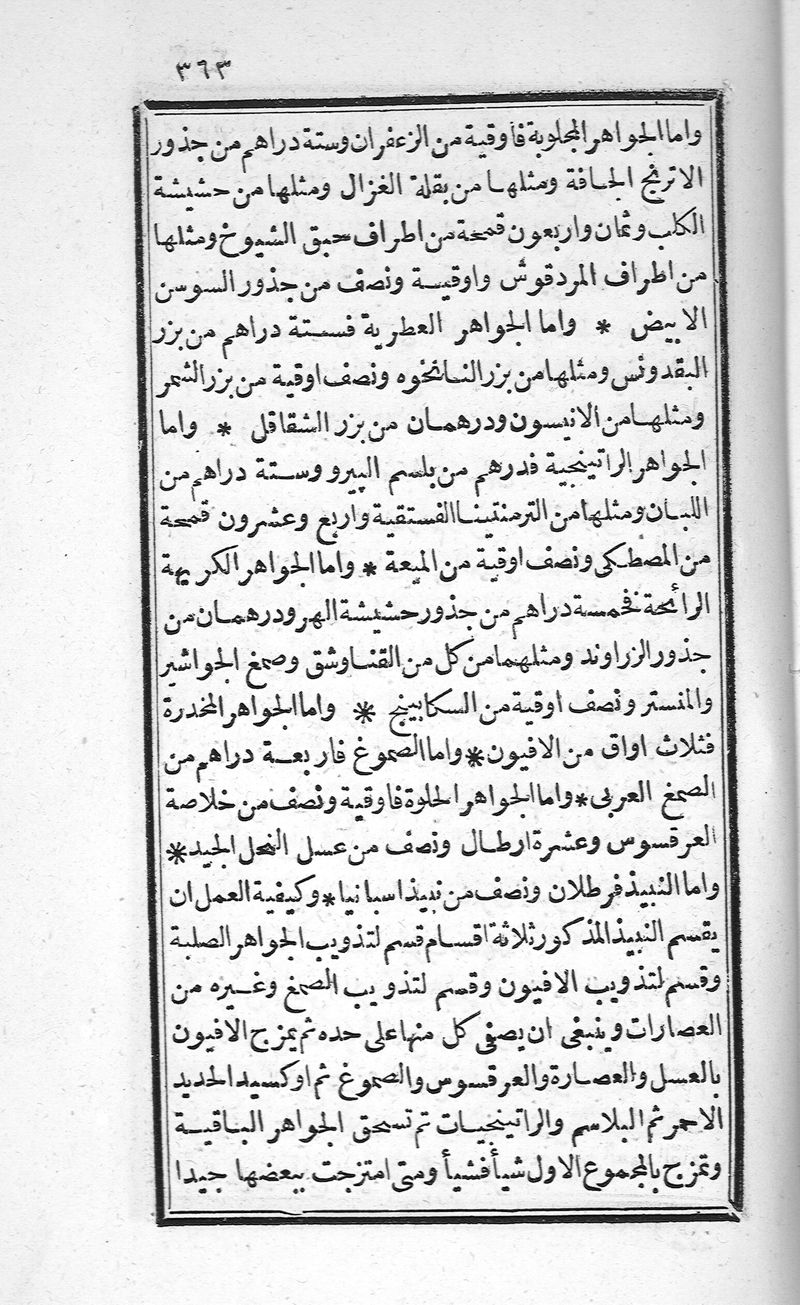 ٣٦٣
واما الجواهر المجلوبة فاوقية من الزعفران وستة دراهم من جذور
الاترنج الجافة ومثلها من بقلة الغزال ومثلها من حشيشة
الكلب وثمان واربعون قمحة من اطراف حبق الشيوخ ومثلها
من اطراف المردقوش واوقية ونصف من جذور السوسن
الابيض * واما الجواهر العطرية فستة دراهم من بزر
البقدونس ومثلها من بزر النانخوه ونصف اوقية من بزر الشمر
ومثلها من الانيسون ودرهمان من بزر الشقاقل * واما
الجواهر الراتينجية فدرهم من بلسم الپيرو وستة دراهم من
اللبان ومثلها من الترمنتينا الفستقية واربع وعشرون قمحة
من المصطكى ونصف اوقية من الميعة * واما الجواهر الكريهة
الرائحة فخمسة دراهم من جذور حشيشة الهر ودرهمان من
جذور الزراوند ومثلهما من كل من القنا وشق وصمغ الجواشير
والمنستر ونصف اوقية من السكابينج * واما الجواهر المخدرة
فثلاث اواق من الافيون * واما الصموغ فاربعة دراهم من
الصمغ العربى * واما الجواهر الحلوة فاوقية ونصف من خلاصة
العرقسوس وعشرة ارطال ونصف من عسل النحل الجيد *
واما النبيذ فرطلان ونصف من نبيذ اسبانيا * وكيفية العمل ان
يقسم النبيذ المذكور ثلاثة اقسام قسم لتذويب الجواهر الصلبة
وقسم لتذويب الافيون وقسم لتذويب الصمغ وغيره من
العصارات وينبغى ان يصفى كل منها على حده ثم يمزج الافيون
بالعسل والعصارة والعرقسوس والصموغ ثم اوكسيد الحديد
الاحمر ثم البلاسم والراتينجيات ثم تسحق الجواهر الباقية
وتمزج بالمجموع الاول شيأ فشيأ ومتى امتزجت ببعضها جيدا